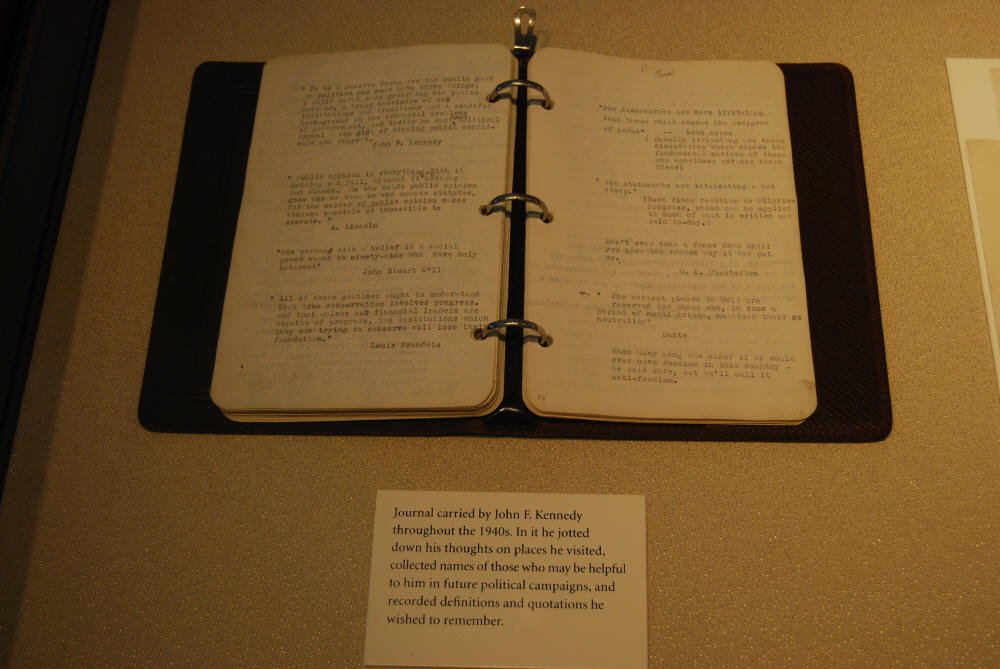 " To be a positve force for the public good
in politics one must have three things;
a solid moral code governing his public
actions, a broad knowledge of our
institutions and traditions and a specific
background in the technical problems
of government, and lastly he must political
appeal - the gift of winning public confid-
ence and support.
John F. Kennedy
" Public opinion is everything. With it
nothing can fail, without it nothing
can succeed. He who molds public opinion
goes deeper than he who enacts statutes,
for the molder of public opinion makes
statues possible or impossible to
execute. "
A. Lincoln
"One person with a belief is a social
power equal to ninety-nine who have only
interest"
John Stuart Mill
" All of these gentlmen ought to understand
that true conservation involves progress.
and that unless our financial leaders are
capable of progress, the institutions which
they are trying to conserve will lose their
foundation."
Louis Brandeis
"Few discoveries are more irritating
than those which expose the pedigree
of ideas" -- Lord Acton
( Usually irritating are those
discoveries which expose the
fundamental motives of those
who sometimes advance these
ideas)
" The statements are interesting - but
steep."
(Huck Finns reaction to Pilgrims
Progress, which can be applied
to much of what is written and
said to-day.)
Don't ever take a fence down until
you know the reason why it was put
up.
G. K. Chesterton
" The hottest places in Hell are
reserved for those who, in time a
period of moral crises, maintain their
neutrality"
Dante
When Huey Long was asked if we would
ever have Fascism in this country -
he said sure, but we'll call it
anti-fascism.
Journal carried by John F. Kennedy
throughout the 1940s. In it he jotted
down his thoughts on places he visited,
collected names of those who may be helpful
to him in future political campaigns, and
recorded definitions and quotations he
wished to remember.